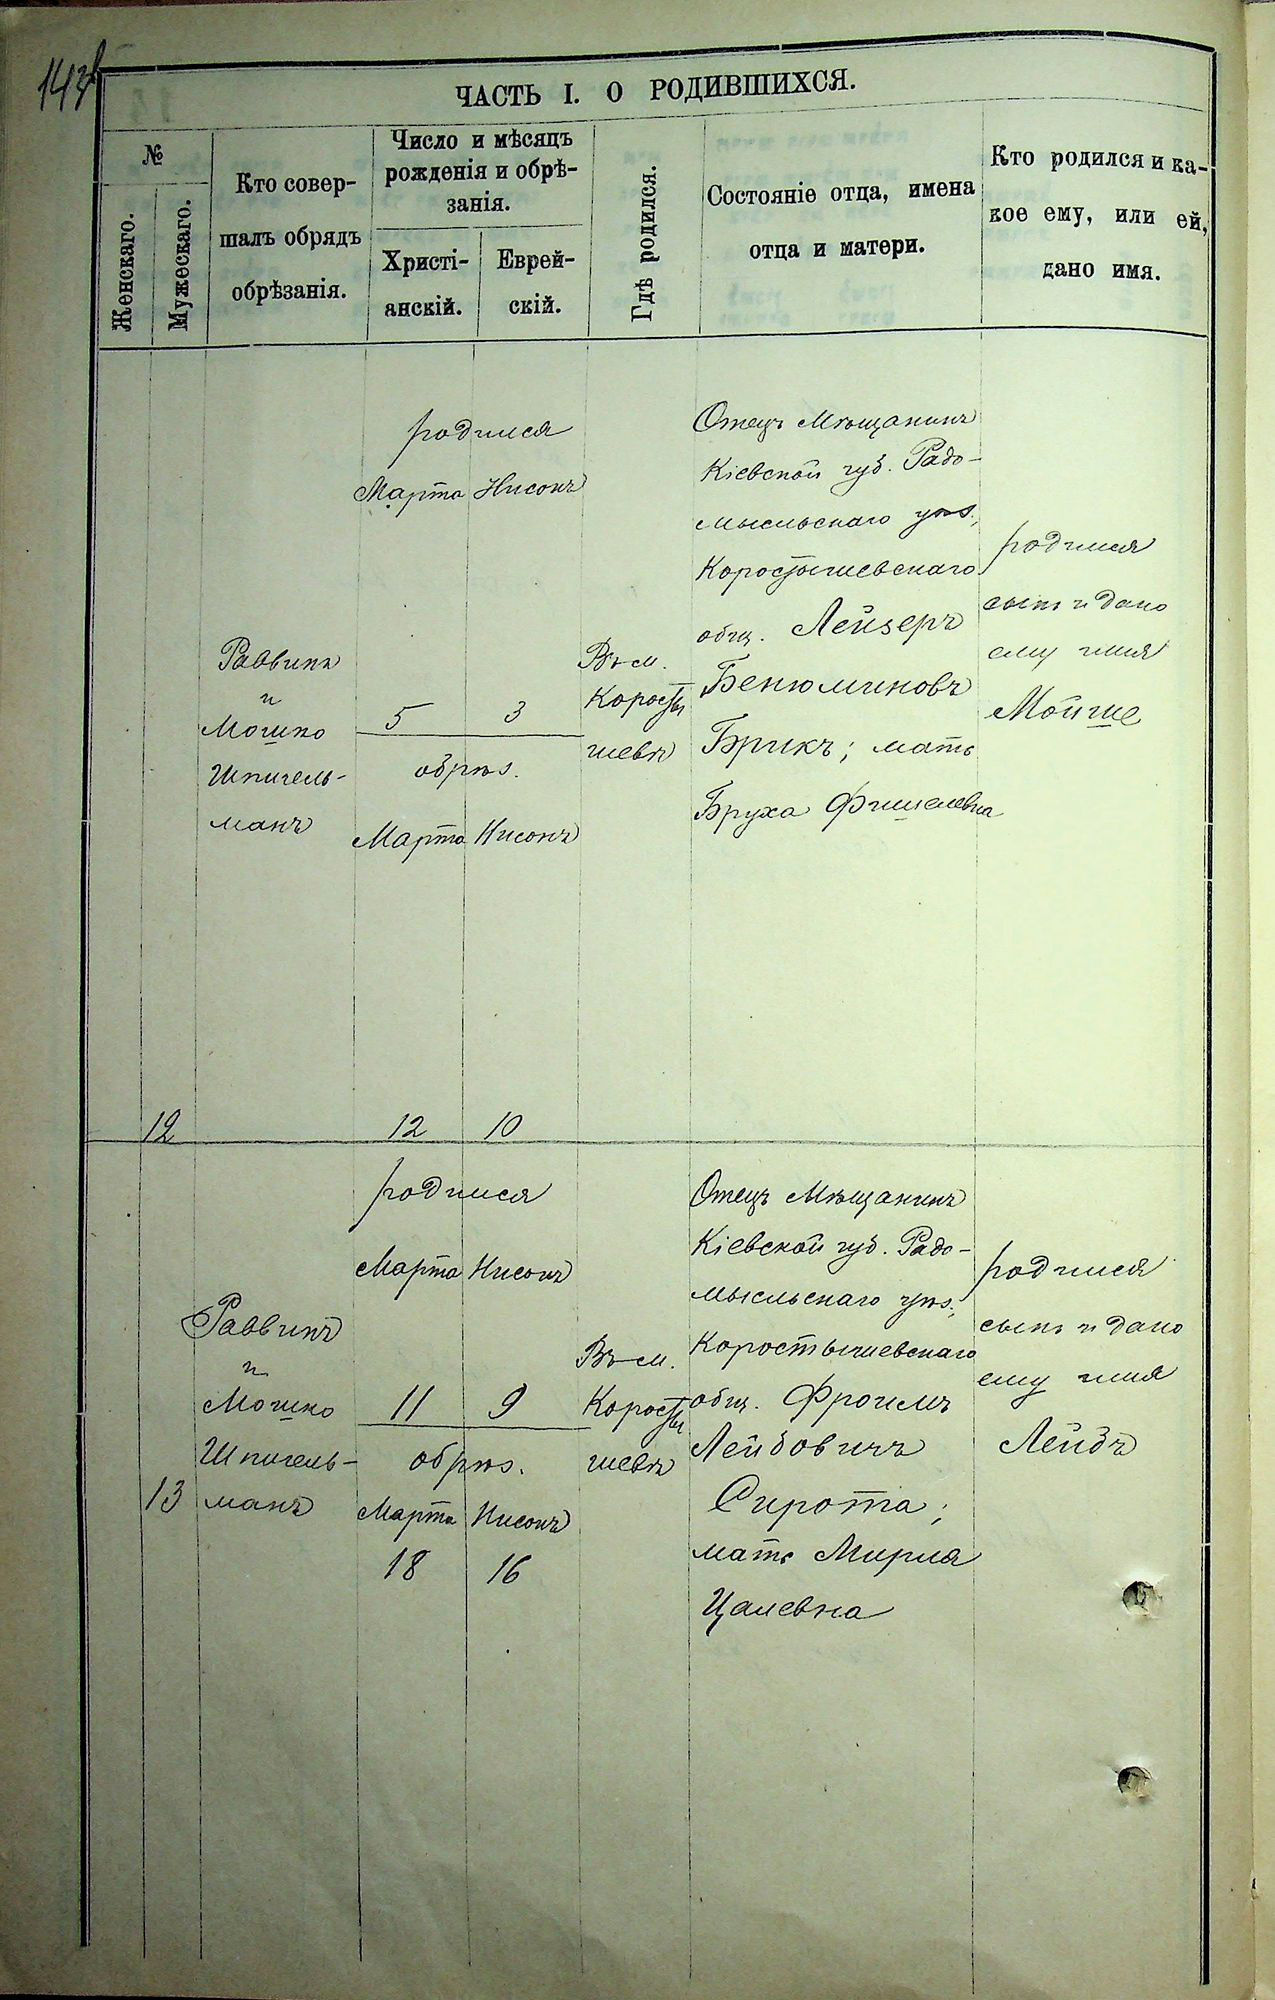 143
ЧАСТЬ I. О РОДИВШИХСЯ.
№
Женскаго.
Мужескаго.
Кто совер-
шалъ обрядъ
обрѣзанія.
Число и мѣсяцъ
рожденія и обрѣ-
занія.
Христі-
анскій.
Еврей-
скій.
Гдѣ родился.
Состояніе отца, имена
отца и матери.
Кто родился и ка-
кое ему, или ей,
дано имя.
12
Раввинъ
и
Мошко
Шпигель-
манъ
родился
Марта Нисонъ
5 3
обрѣз.
Марта Нисонъ
12 10
Въ м.
Коросты
шевѣ
Отецъ Мѣщанинъ
Кіевской губ. Радо-
мысльскаго уѣз.,
Коростышевскаго
общ. Лейзеръ
Бенюминовъ
Брикъ; мать
Бруха Фишелевна
родился
сынъ и дано
ему имя
Мойше
13
Раввинъ
и
Мошко
Шпигель-
манъ
родился
Марта Нисонъ
11 9
обрѣз.
Марта Нисонъ
18 16
Въ м.
Коросты
шевѣ
Отецъ Мѣщанинъ
Кіевской губ. Радо-
мысльскаго уѣз.,
Коростышевскаго
общ. Фроимъ
Лейбовичъ
Сирота;
мать Мирля
Цалевна
родился
сынъ и дано
ему имя
Лейбъ